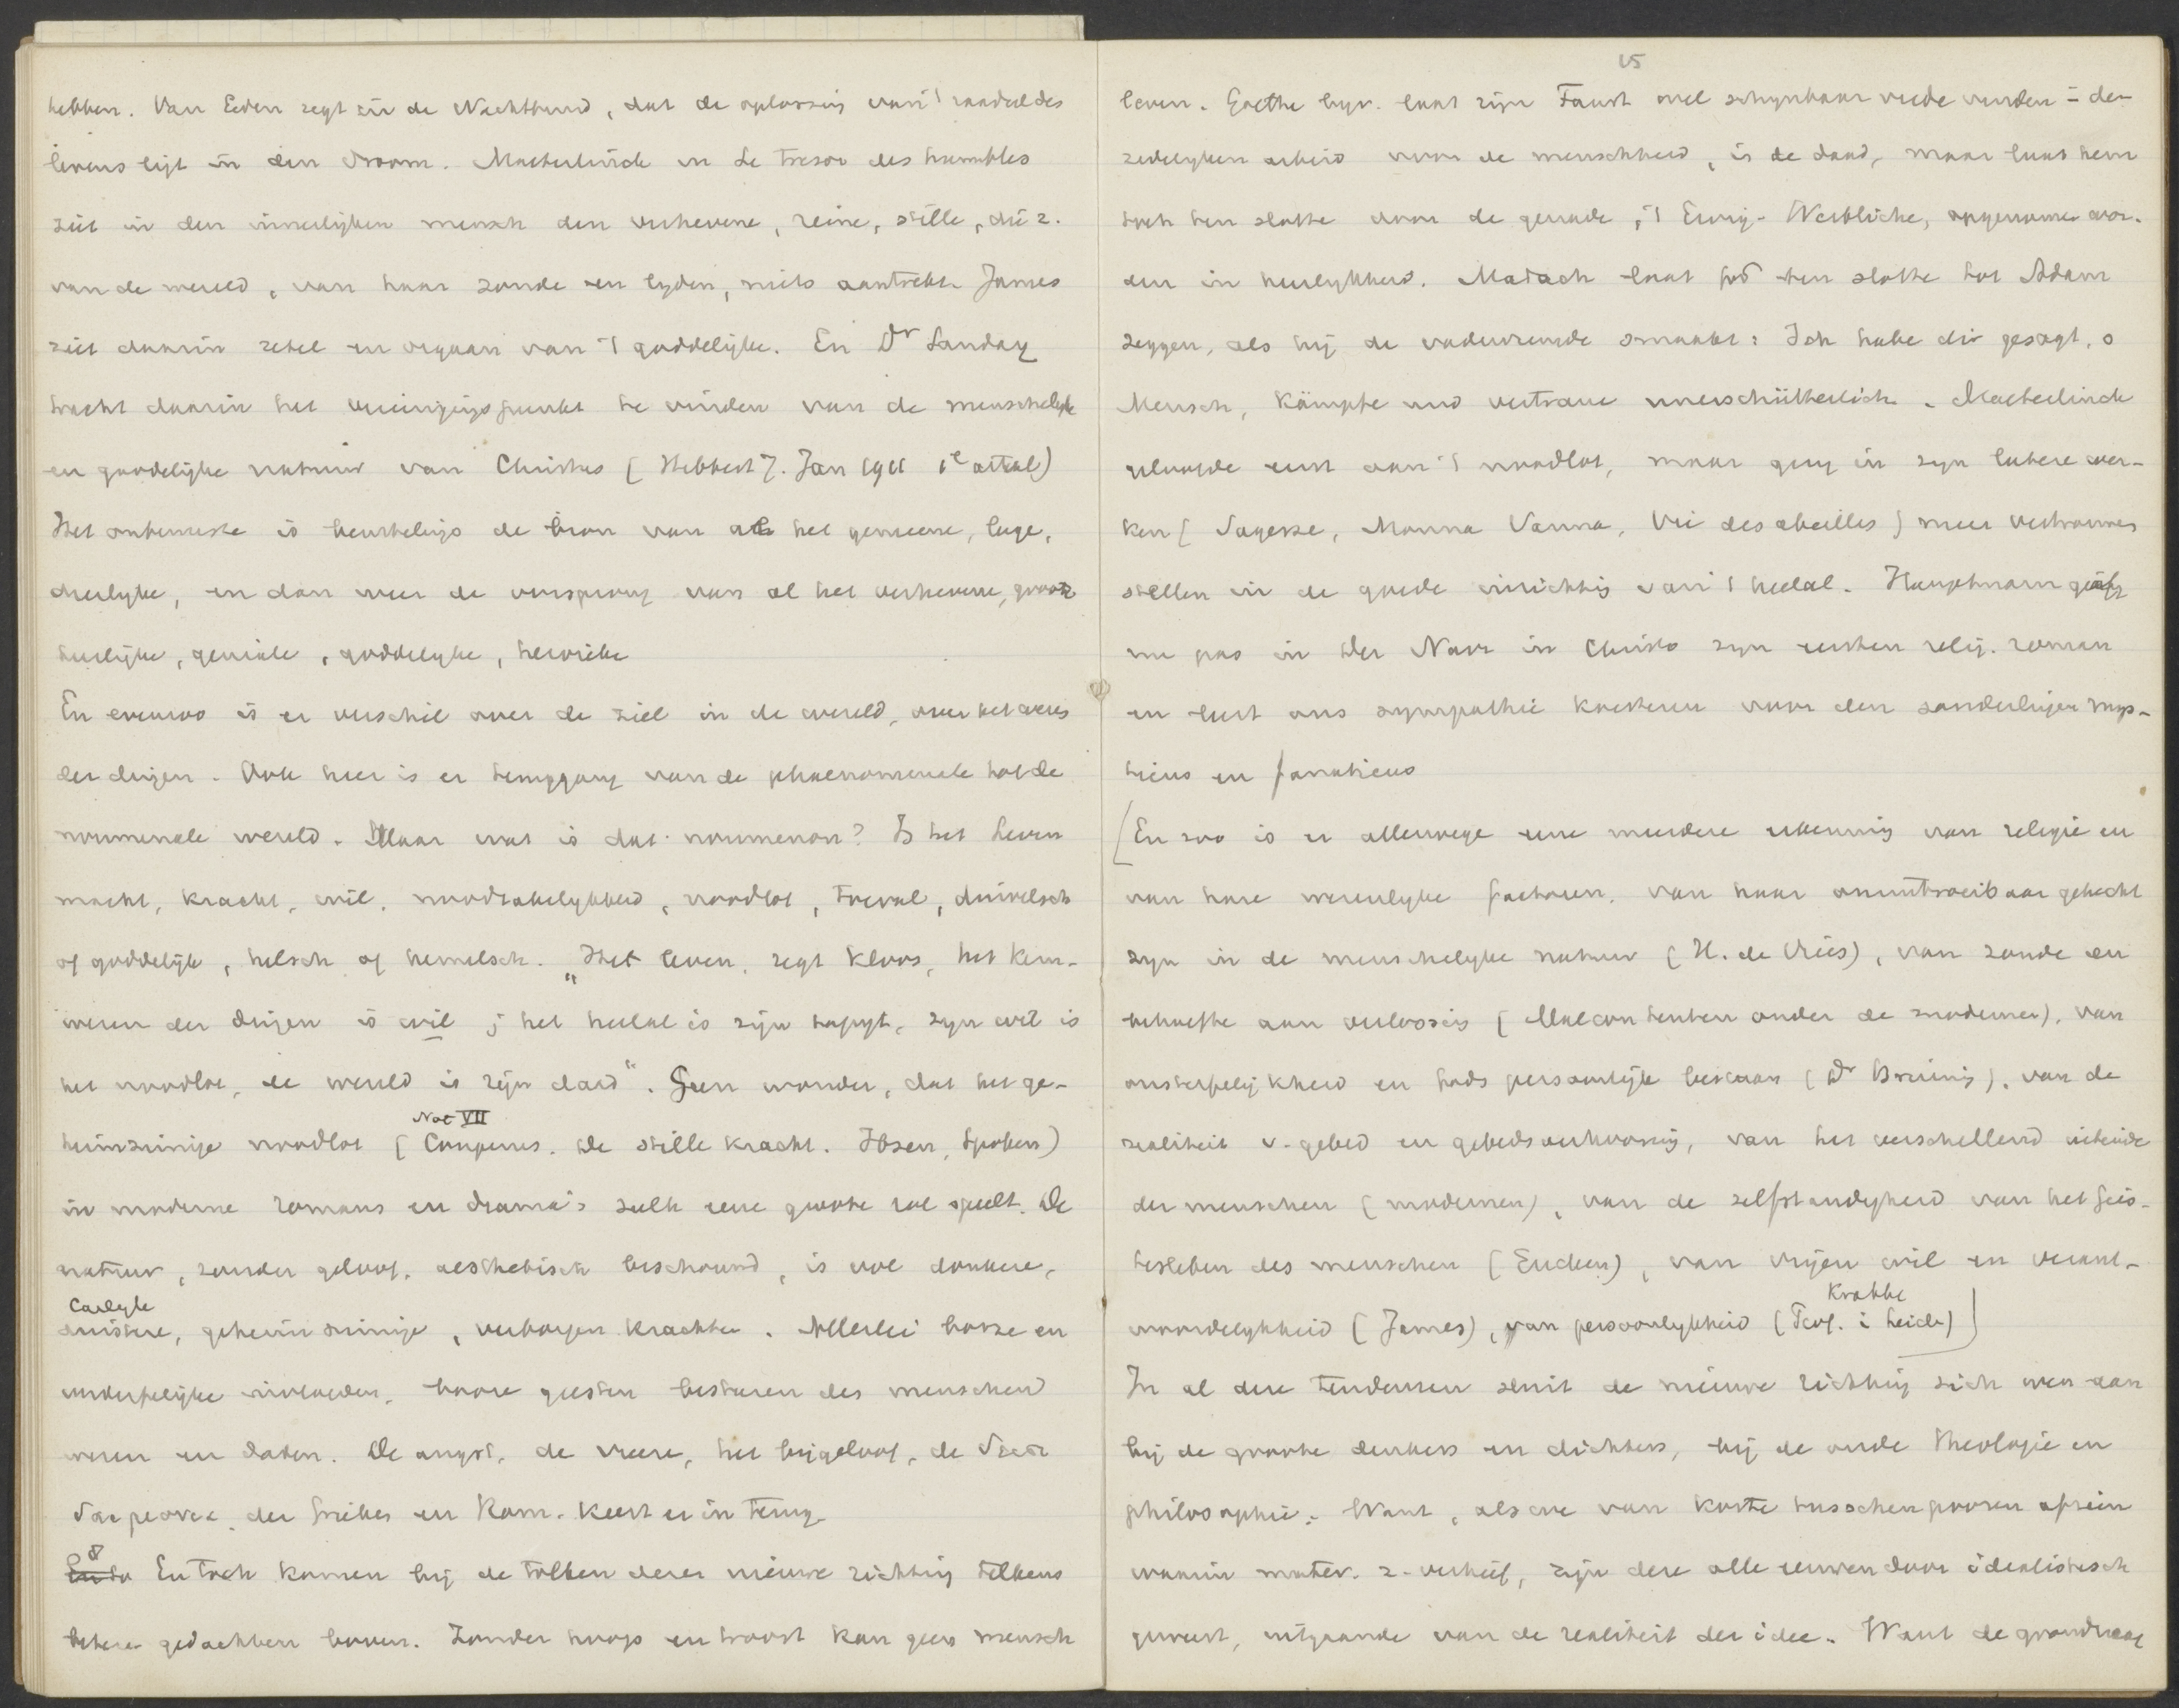 hebben. Van Eeden zegt in de Nachtbruid, dat de oplossing van 't raadsel des
levens ligt in den droom. Maeterlinck in Le Tresor des humbles
ziet in den innerlijken mensch den verhevene, reine, stille, die z.
van de wereld, van haar zonde en lyden, niets aantrekt. James
ziet daarin zetel en orgaan van 't goddelijke. En Dr Sanday
tracht daarin het vereenigingspunkt te vinden van de menschelyke
en goddelijke natuur van Christus (Hibbert J. Jan 1911 1e artikel)
Het onbewuste is beurtelings de bron van al het gemeene, lage,
dierlyke, en dan weer de oorsprong van al het verhevene, groote
heerlijke, geniale, goddelyke, heroieke
En evenzoo is er verschil over de ziel in de wereld, over het wezen
der dingen. Ook hier is er teruggang van de phaenomenale tot de
noumenale wereld. Maar wat is dat noumenon? Is het leven
macht, kracht, wil, noodzakelykheid, noodlot, toeval, duivelsch
of goddelijk, helsch of hemelsch. "Het leven, zegt Kloos, het kern-
wezen der dingen is wil; het heelal is zijn tapyt, zyn wet is
het noodlot, de wereld is zijn daad". Geen wonder, dat het ge-
Not VII
heimzinnige noodlot (Couperus. De stille kracht. Ibsen, Spoken)
in moderne romans en drama's zulk eene groote rol speelt. De
natuur, zonder geloof, aesthetisch beschouwd, is vol donkere,
Carlyle
sinistere, geheimzinnige, verborgen krachten. Allerlei booze en
verderfelijke invloeden, booze geesten besturen des menschen
wezen en daden. De angst, de vreeze, het bijgeloof, de
der Grieken en Rom. keert er in terug.
8 En toch komen bij de tolken dezer nieuwe richting telkens
betere gedachten boven. Zonder hoop en troost kan geen mensch
15
leven. Goethe bijv. laat zijn Faust wel schynbaar vrede vinden i den
zedelyken arbeid voor de menschheid, in de daad, maar laat hem
toch ten slotte door de genade, 't Ewig-Weibliche, opgenomen wor-
den in heerlykheid. Madach laat God ten slotte tot Adam
zeggen, als hij de vadervreugde smaakt: Ich habe dir gesagt, o
Mensch, kämpfe und vertraue unerschütterlich. Maeterlinck
geloofde eerst aan 't noodlot, maar ging in zyn latere wer-
ken (Sagesse, Monna Vanna, Vie des abeilles) meer vertrouwen
stellen in de goede inrichting van 't heelal. Hauptmann geeft
nu pas in Der Narr in Christo zyn eersten relig. roman
en leert ons sympathie koesteren voor den zonderlingen mys-
ticus en fanaticus
[En zoo is er allerwege eene meerdere erkenning van religie en
van hare wezenlyke factoren, van haar onuitroeibaar gehecht
zyn in de menschelyke natuur (H. de Vries), van zonde en
behoefte aan verlossing (Malcontenten onder de modernen), van
onsterfelijkheid en Gods persoonlijk bestaan (Dr Bruining), van de
realiteit v. gebed en gebedsverhooring, van het verschillend uiteinde
der menschen (modernen), van de zelfstandigheid van het Geis-
tesleben des menschen (Eucken), van vrijen wil en verant-
Krabbe
woordelykheid (James), van persoonlykheid (Prof. i Leiden)]
In al deze tendenzen sluit de nieuwe richting zich weer aan
bij de groote denkers en dichters, bij de oude theologie en
philosophie. Want, als we van korte tusschenpoozen afzien
waarin mater. z. verhief, zijn deze alle eeuwen door idealistisch
geweest, uitgaande van de realiteit der idee. Want de grondvraag